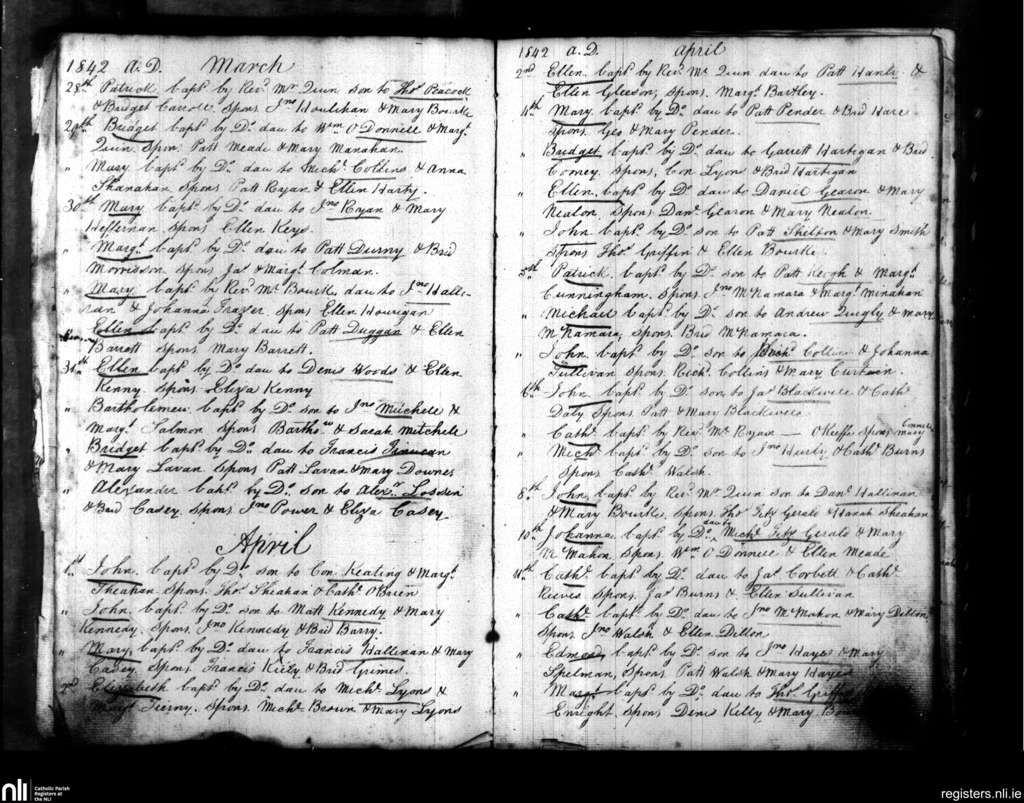 1842 A.D. March
28th Patrick bapt by Revd Mr Quin son to Thos Peacock
& Bridget Carroll Spons Jno Houlihan & Mary Bourke
29th Bridget bapt by Do dau to Wm O Donnell & Margt
Quin. Spon. Patt Meade & Mary Manahan.
" Mary bapt by Do dau to Michl Collins & Anna
Shanahan Spons Patt Ryan & Ellen Harty.
30th Mary bapt by Do dau to Jno Ryan & Mary
Heffernan Spons Ellen Keys.
" Margt bapt by Do dau to Patt Durny & Brid
Morrisson Spons Jas & Margt Colman.
" Mary bapt by Revd Mr Bourke dau to Jno Halli-
nan & Johanna Frazer Spons Ellen Hourigan
Ellen bapt by Do dau to Patt Duggan & Ellen
Barrett Spons Mary Barrett.
31st Ellen bapt by Do dau to Denis Woods & Ellen
Kenny Spons Eliza Kenny
" Bartholemew bapt by Do son to Jno Mitchell &
Margt Salmon Spons Barthow & Sarah Mitchell
" Bridget bapt by Do dau to Francis Finucan
& Mary Lavan Spons Patt Lavan & Mary Downes
" Alexander bapt by Do son to Alexr Lossin
& Brid Casey Spons Jno Power & Eliza Casey
April
1st John bapt by Do son to Con Keating & Margt
Sheahan Spons Thos Sheahan & Cath O Brien
" John bapt by Do son to Matt Kennedy & Mary
Kennedy Spons Jno Kennedy & Brid Barry.
" Mary bapt by Do dau to Francis Hallinan & Mary
Casey Spons Francis Kiely & Brid Grimes
2nd Elizabeth bapt by Do dau to Michl Lyons &
Margt Tierny. Spons Michl Brown & Mary Lyons
1842 A.D. April
2nd Ellen bapt by Revd Mr Quin dau to Patt Hantz &
Ellen Gleeson, Spons Margt Bartley.
4th Mary bapt by Do dau to Patt Pender & Brid Hare
Spons Geo & Mary Pender.
" Bridget bapt by Do dau to Garrett Hartigan & Brid
Comey Spons, Con Lyons & Brid Hartigan
" Ellen bapt by Do dau to Daniel Gearon & Mary
Nealon, Spons Danl Gearon & Mary Nealon.
" John bapt by Do son to Patt Shelton & Mary Smith
Spons Thos Griffin & Ellen Bourke.
5th Patrick bapt by Do son to Patt Keogh & Margt
Cunningham Spons Jno McNamara & Margt Minahan
" Michael bapt by Do son to Andrew Quigly & Mary
McNamara, Spons Brid McNamara.
" John bapt by Do son to Richd Collins & Johanna
Sullivan Spons Richd Collins & Mary Curtain.
6th John bapt by Do son to Jas Blackwell & Cath
Daly Spons Patt & Mary Blackwell
" Cath bapt by Revd Mr Ryan — O Keeffe Spons Mary
" Michl bapt by Do son to Jno Hurly & Cath Burns
Spons Cath Walsh.
8th John bapt by Revd Mr Quin son to Danl Hallinan
& Mary Bourke, Spons Thos Fitz Gerald & Hanah Sheahan
10th Johanna bapt by Do dau to Michl Fitz Gerald & Mary
McMahon Spons Wm O Donnell & Ellen Meade
11th Cath bapt by Do dau to Jas Corbett & Cath
Reeves Spons Jas Burns & Ellen Sullivan
" Cath bapt by Do dau to Jno McMahon & Mary Dillon,
Spons Jno Walsh & Ellen Dillon
" Edmond bapt by Do son to Jno Hayes & Mary
Spelman, Spons Patt Walsh & Mary Hayes
" Margt bapt by Do dau to Thos Griffin
Enright Spons Denis Kelly & Mary
nli Catholic Parish
Registers at
the NLI
registers.nli.ie